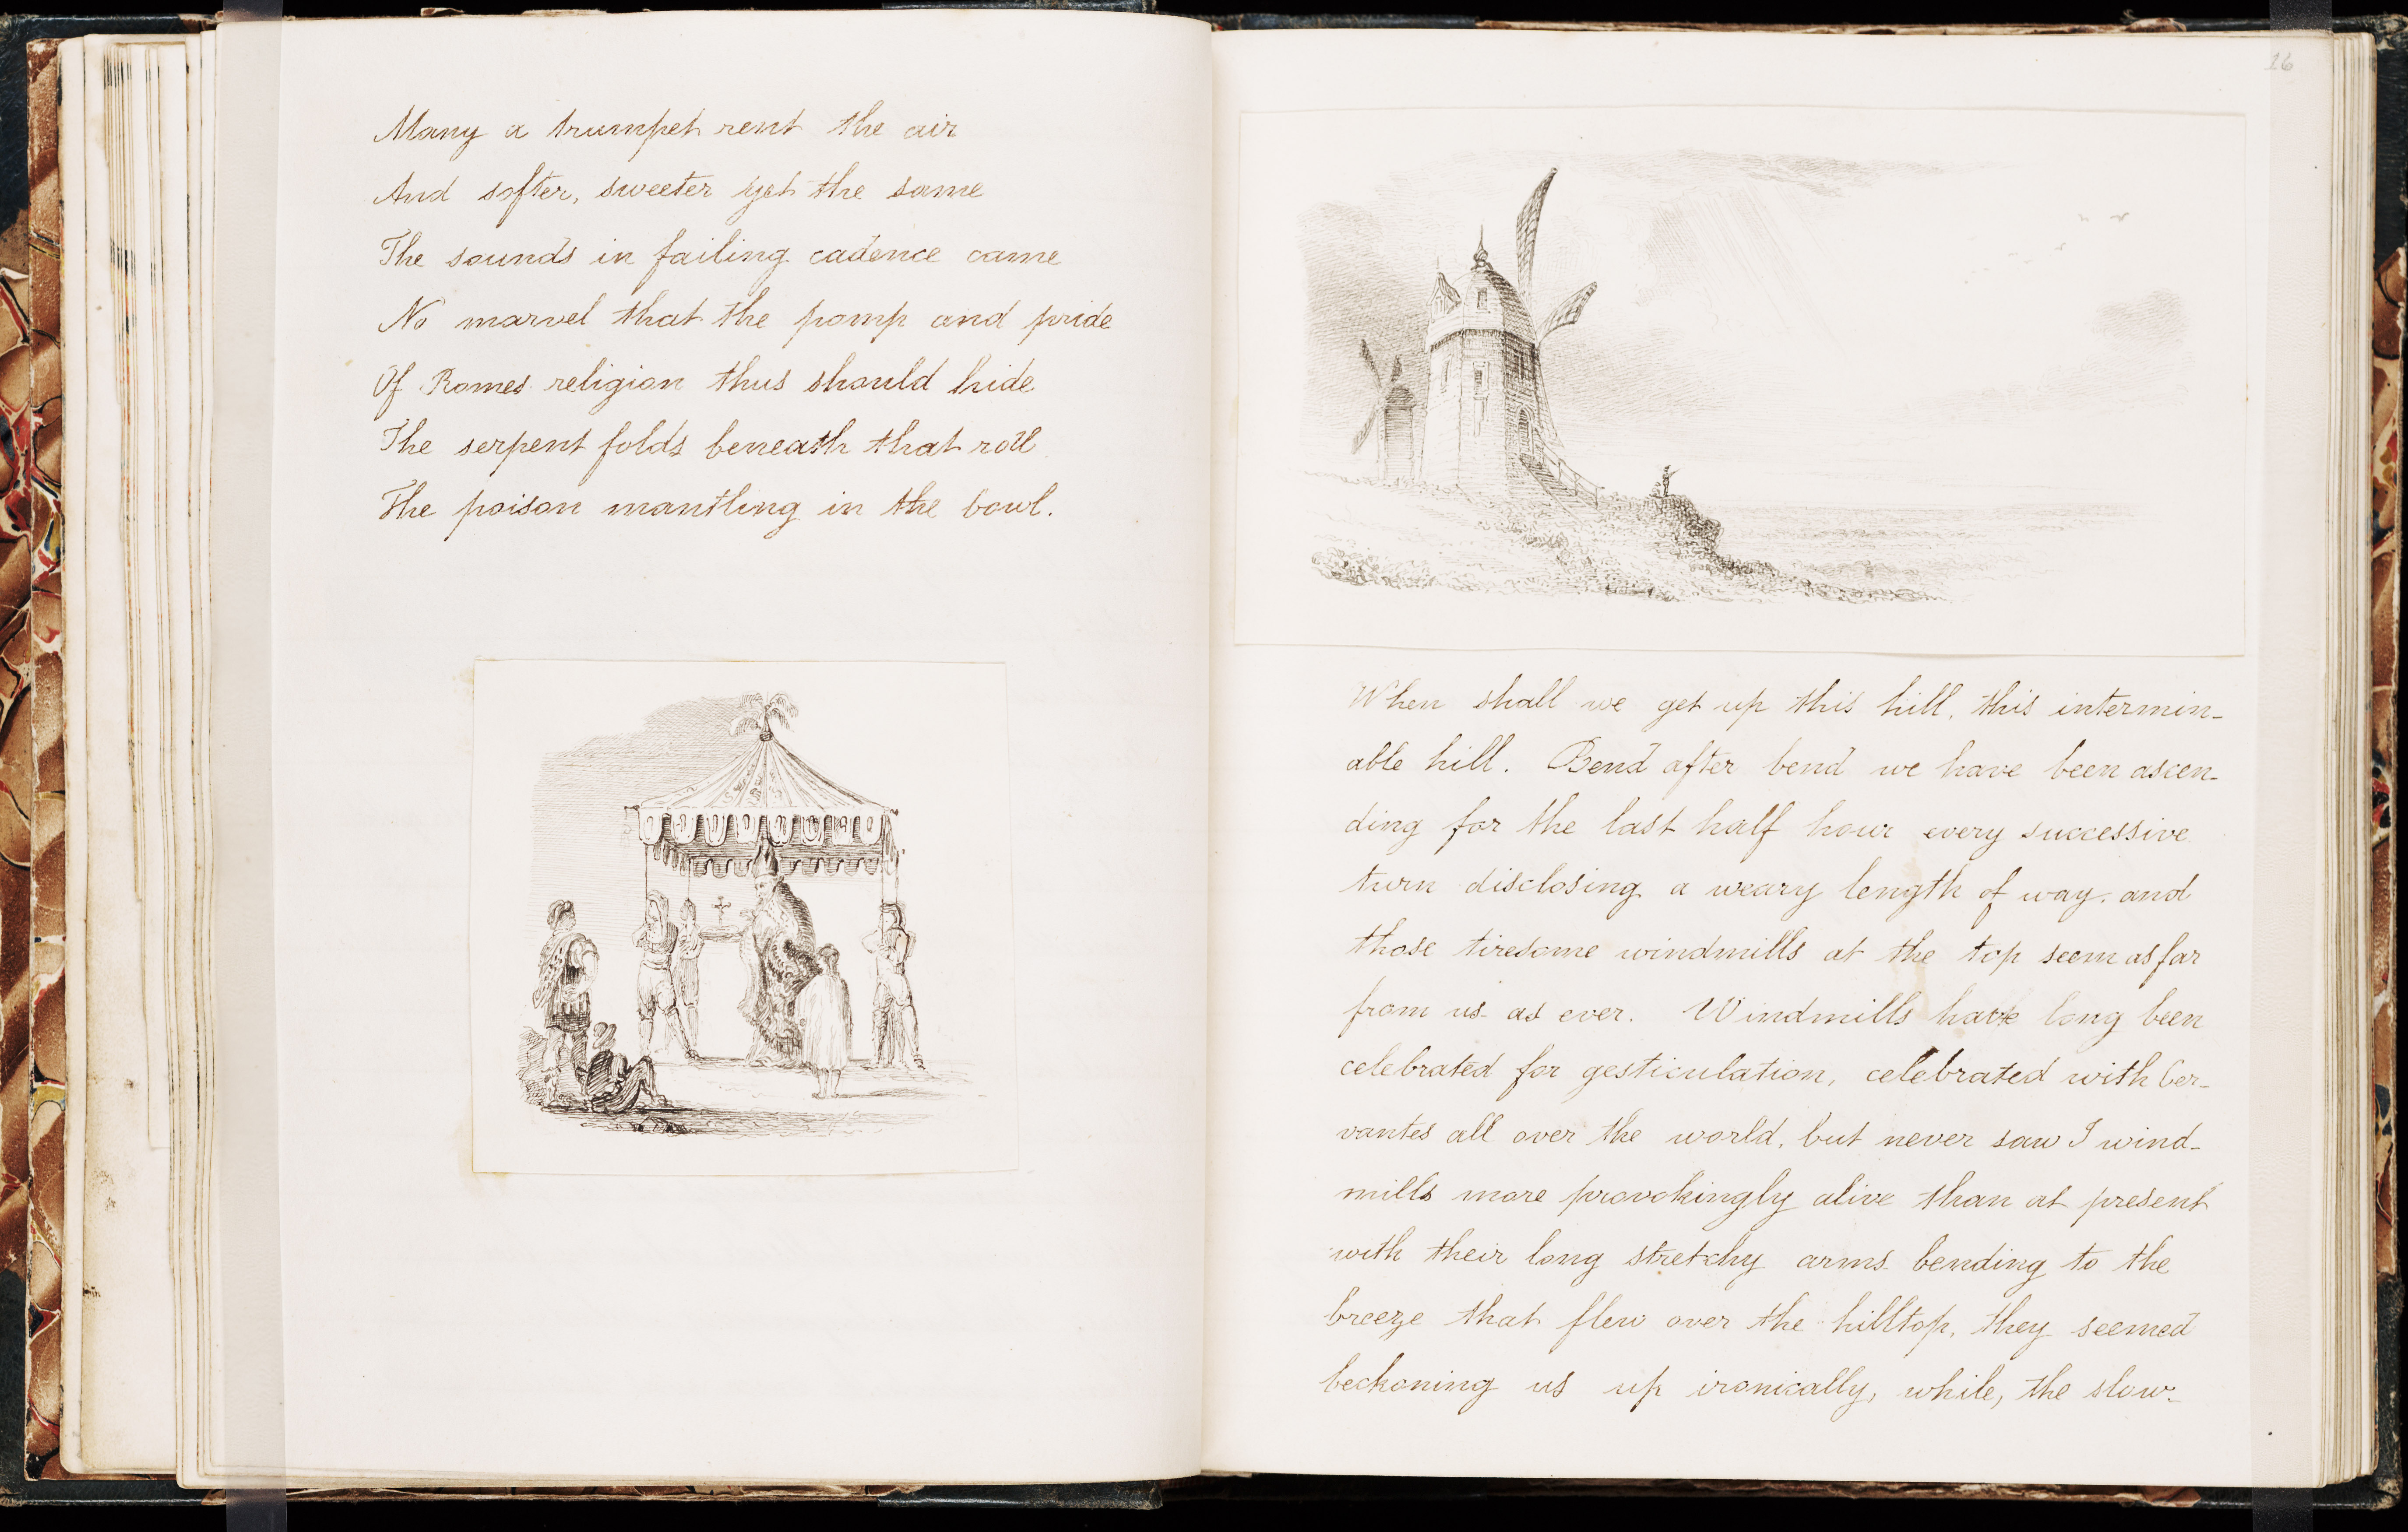 Many a trumpet rent the air
And softer, sweeter yet the same
The sounds in failing cadence came
No marvel that the pomp and pride
Of Romes religion thus should hide
The serpent folds beneath that roll
The poison mantling in the bowl.
16
When shall we get up this hill, this intermin-
able hill. Bend after bend we have been ascen-
ding for the last half hour every successive
turn disclosing a weary length of way. and
those tiresome windmills at the top seem as far
from us as ever. Windmills have long been
celebrated for gesticulation, celebrated with Cer-
vantes all over the world, but never saw I wind-
mills more provokingly alive than at present
with their long stretchy arms bending to the
breeze that flew over the hilltop, they seemed
beckoning us up ironically, while, the slow-